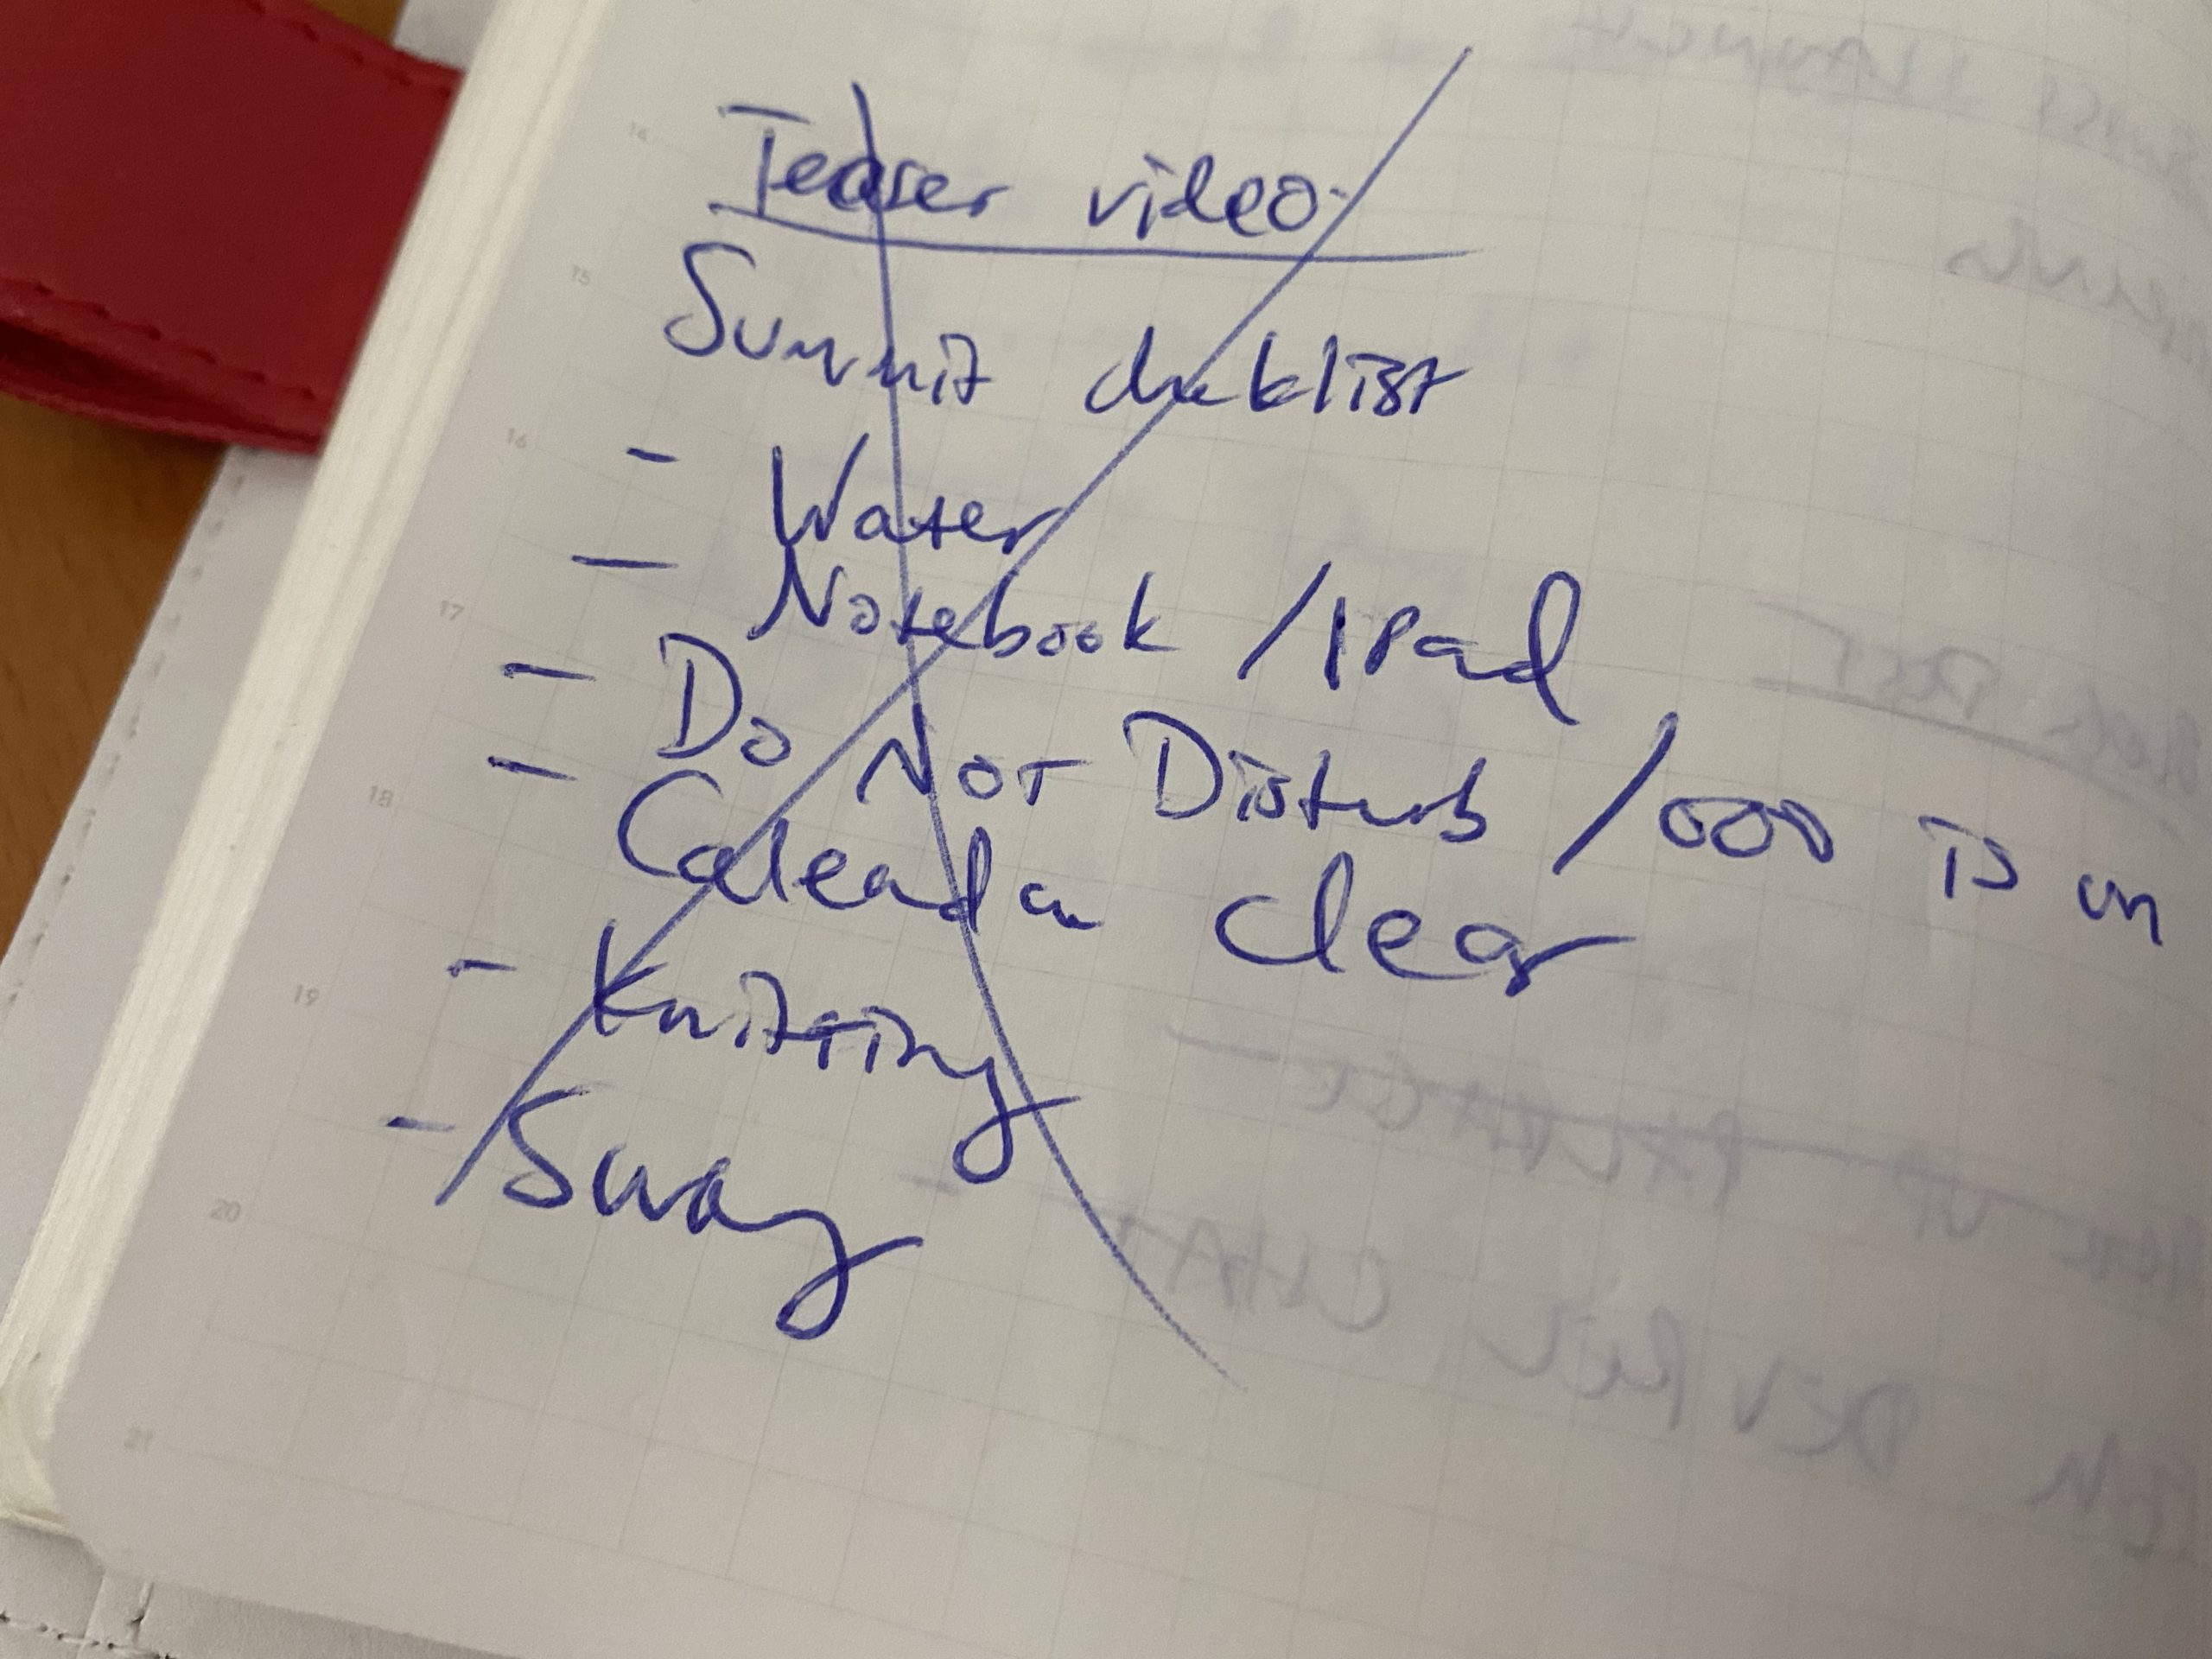 Teaser video
Summit cheklist
- Water
- Notebook / IPad
- Do Not Disturb / OOO is on
- Calendar clear
- Knitting
- Swag
14
15
16
17
18
19
20
21